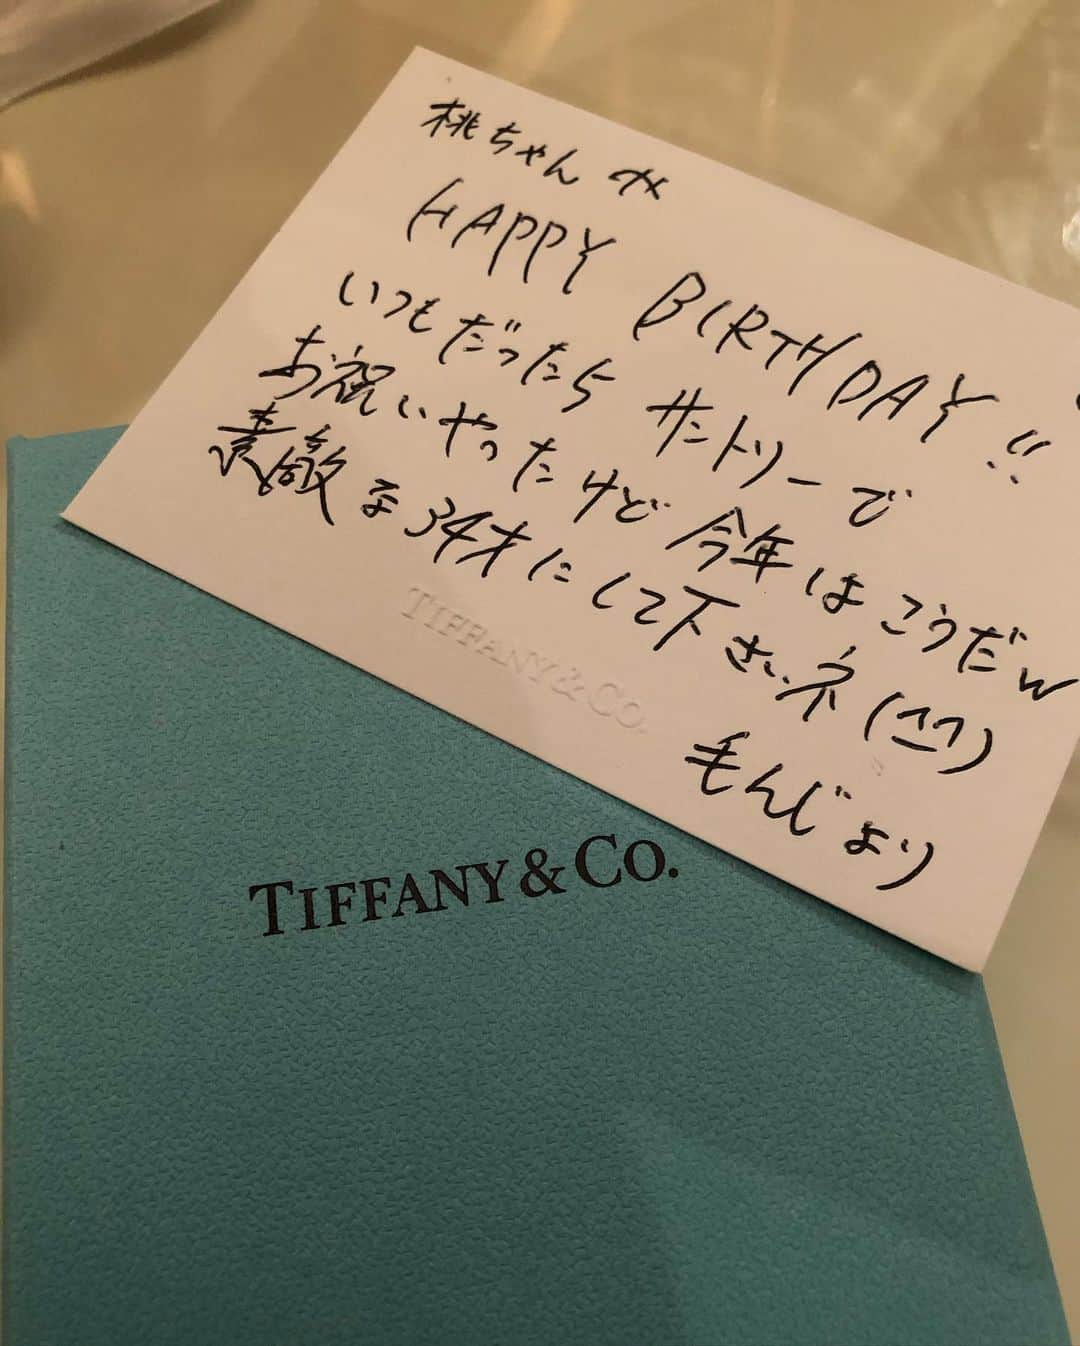 桃ちゃん へ
HAPPY BIRTHDAY !!
いつもだったら サントリーで
お祝いやったけど 今年はこうだw
素敵な34才にして下さいネ (^^)
毛んじより
TIFFANY & CO.
TIFFANY & CO.